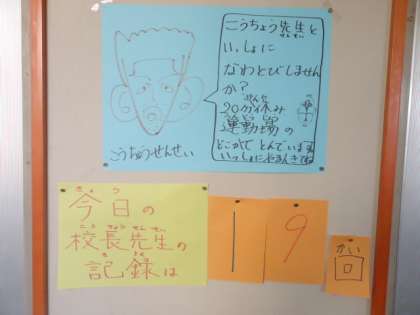 こうちょう先生と
いっしょに
なわとびしません
か?
20分休み
運動場の
どこかで とんでいます
いっしょにやるんきでね
こうちょうせんせい
今日の
校長先生の
記録は
19
回